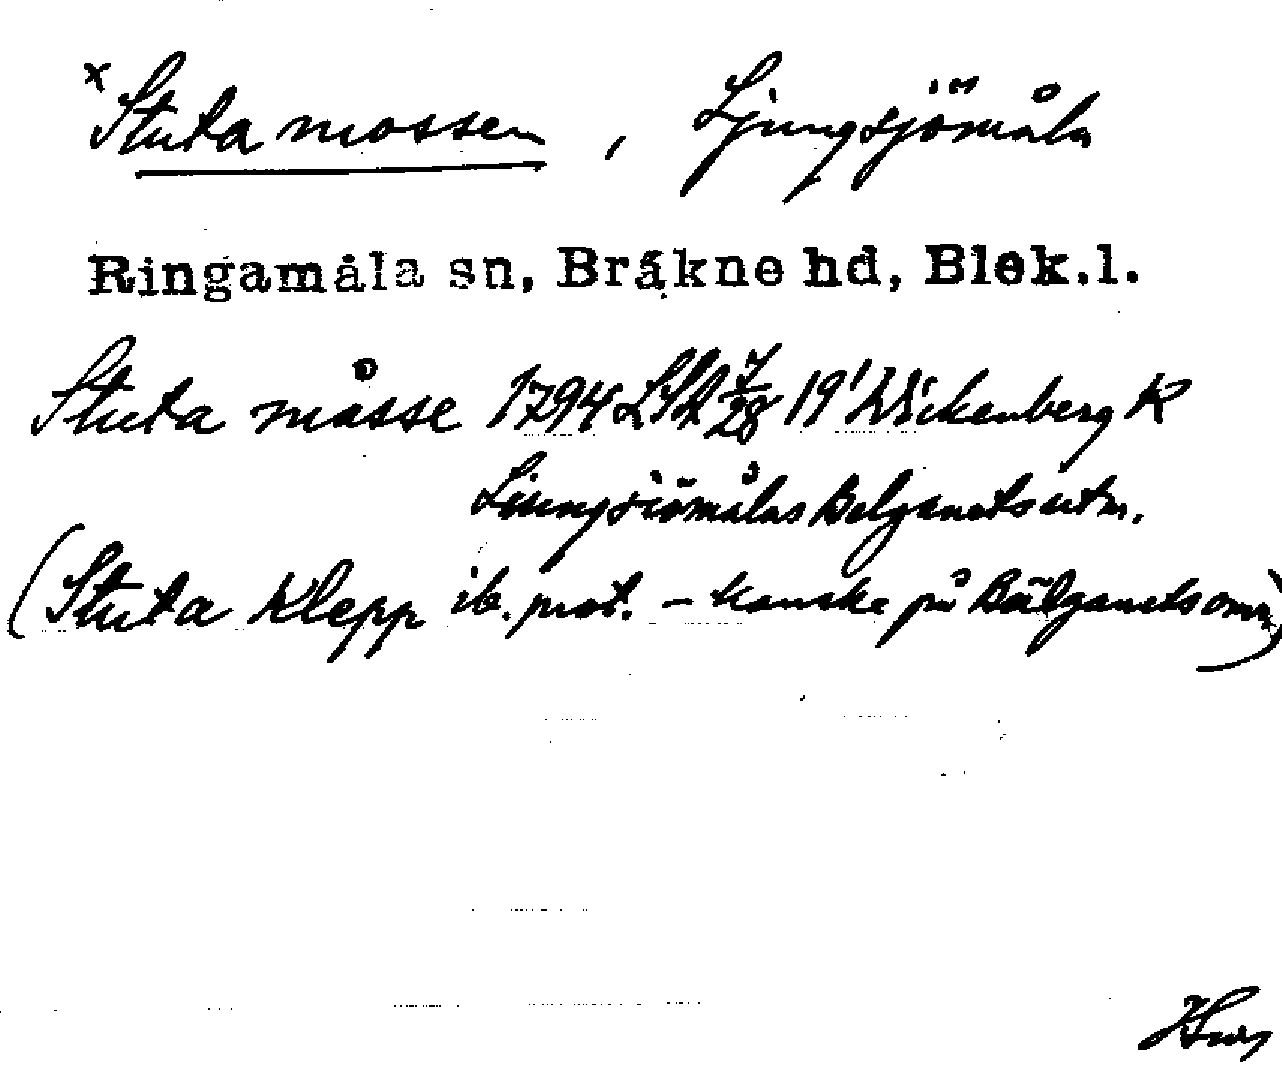 x Stuta mossen, Ljungsjömåla
Ringamåla sn, Bräkne hd, Blek.l.
Stuta måsse 1794 LSA 7/28 19' Wickenberg K
Liungsiömålas Belganets utm.
(Stuta Klepp ib. prot. – kanske på Bälganets omr)